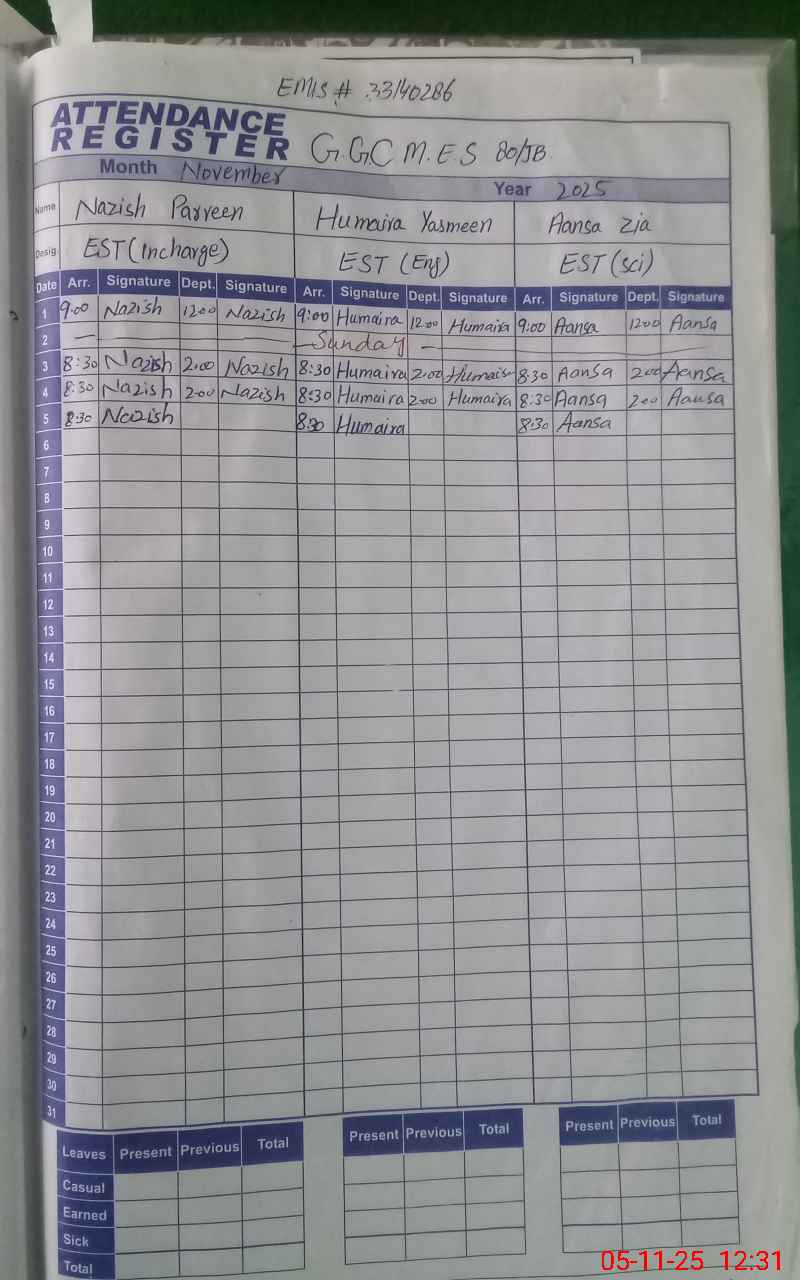 EMIS # 33140286
ATTENDANCE
REGISTER G.G.C M.E.S 80/JB.
Month November Year 2025
Name Nazish Parveen Humaira Yasmeen Aansa Zia
Desig. EST (Incharge) EST (Eng) EST (sci)
Date Arr. Signature Dept. Signature Arr. Signature Dept. Signature Arr. Signature Dept. Signature
1 9:00 Nazish 12:00 Nazish 9:00 Humaira 12:00 Humaira 9:00 Aansa 12:00 Aansa
2 — Sunday —
3 8:30 Nazish 2:00 Nazish 8:30 Humaira 2:00 Humaira 8:30 Aansa 2:00 Aansa
4 8:30 Nazish 2:00 Nazish 8:30 Humaira 2:00 Humaira 8:30 Aansa 2:00 Aansa
5 8:30 Nazish 8:30 Humaira 8:30 Aansa
6
7
8
9
10
11
12
13
14
15
16
17
18
19
20
21
22
23
24
25
26
27
28
29
30
31
Leaves Present Previous Total Present Previous Total Present Previous Total
Casual
Earned
Sick
Total
05-11-25 12:31